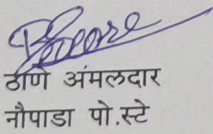 ठाणे अंमलदार
नौपाडा पो.स्टे